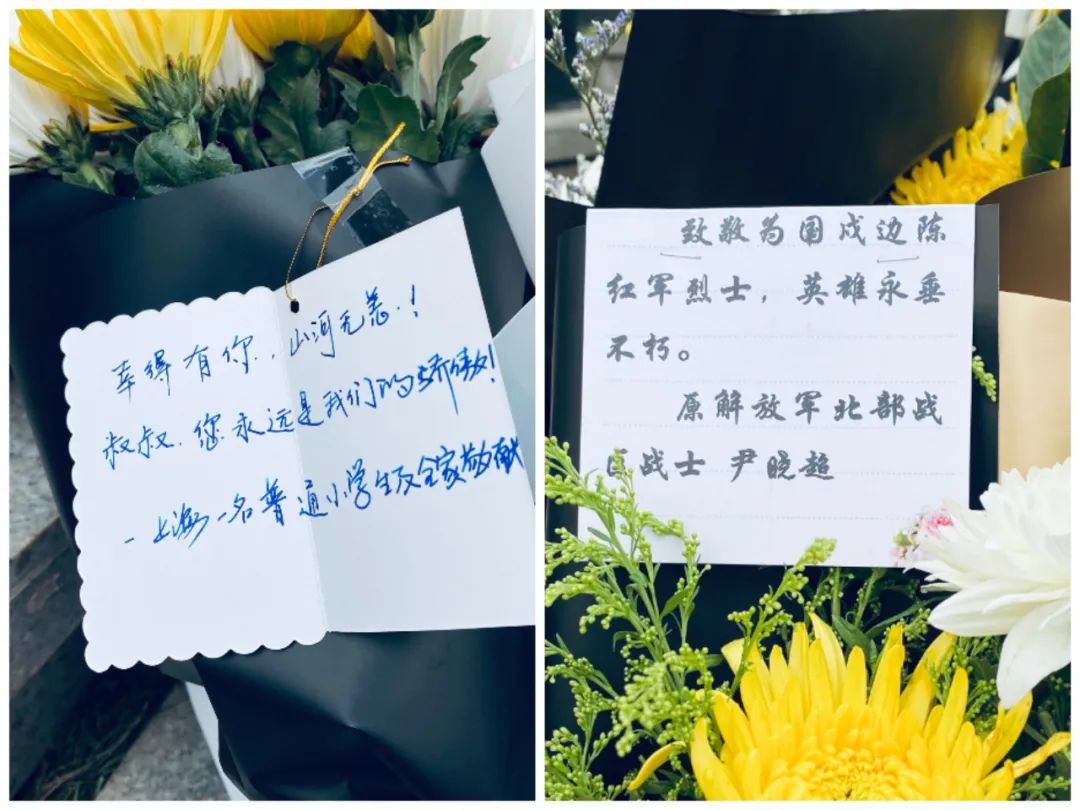 幸得有你，山河无恙！
叔叔.您永远是我们的骄傲！
-上海一名普通小学生及全家敬献
致敬为国戍边陈
红军烈士，英雄永垂
不朽。
原解放军北部战
区战士 尹晓超